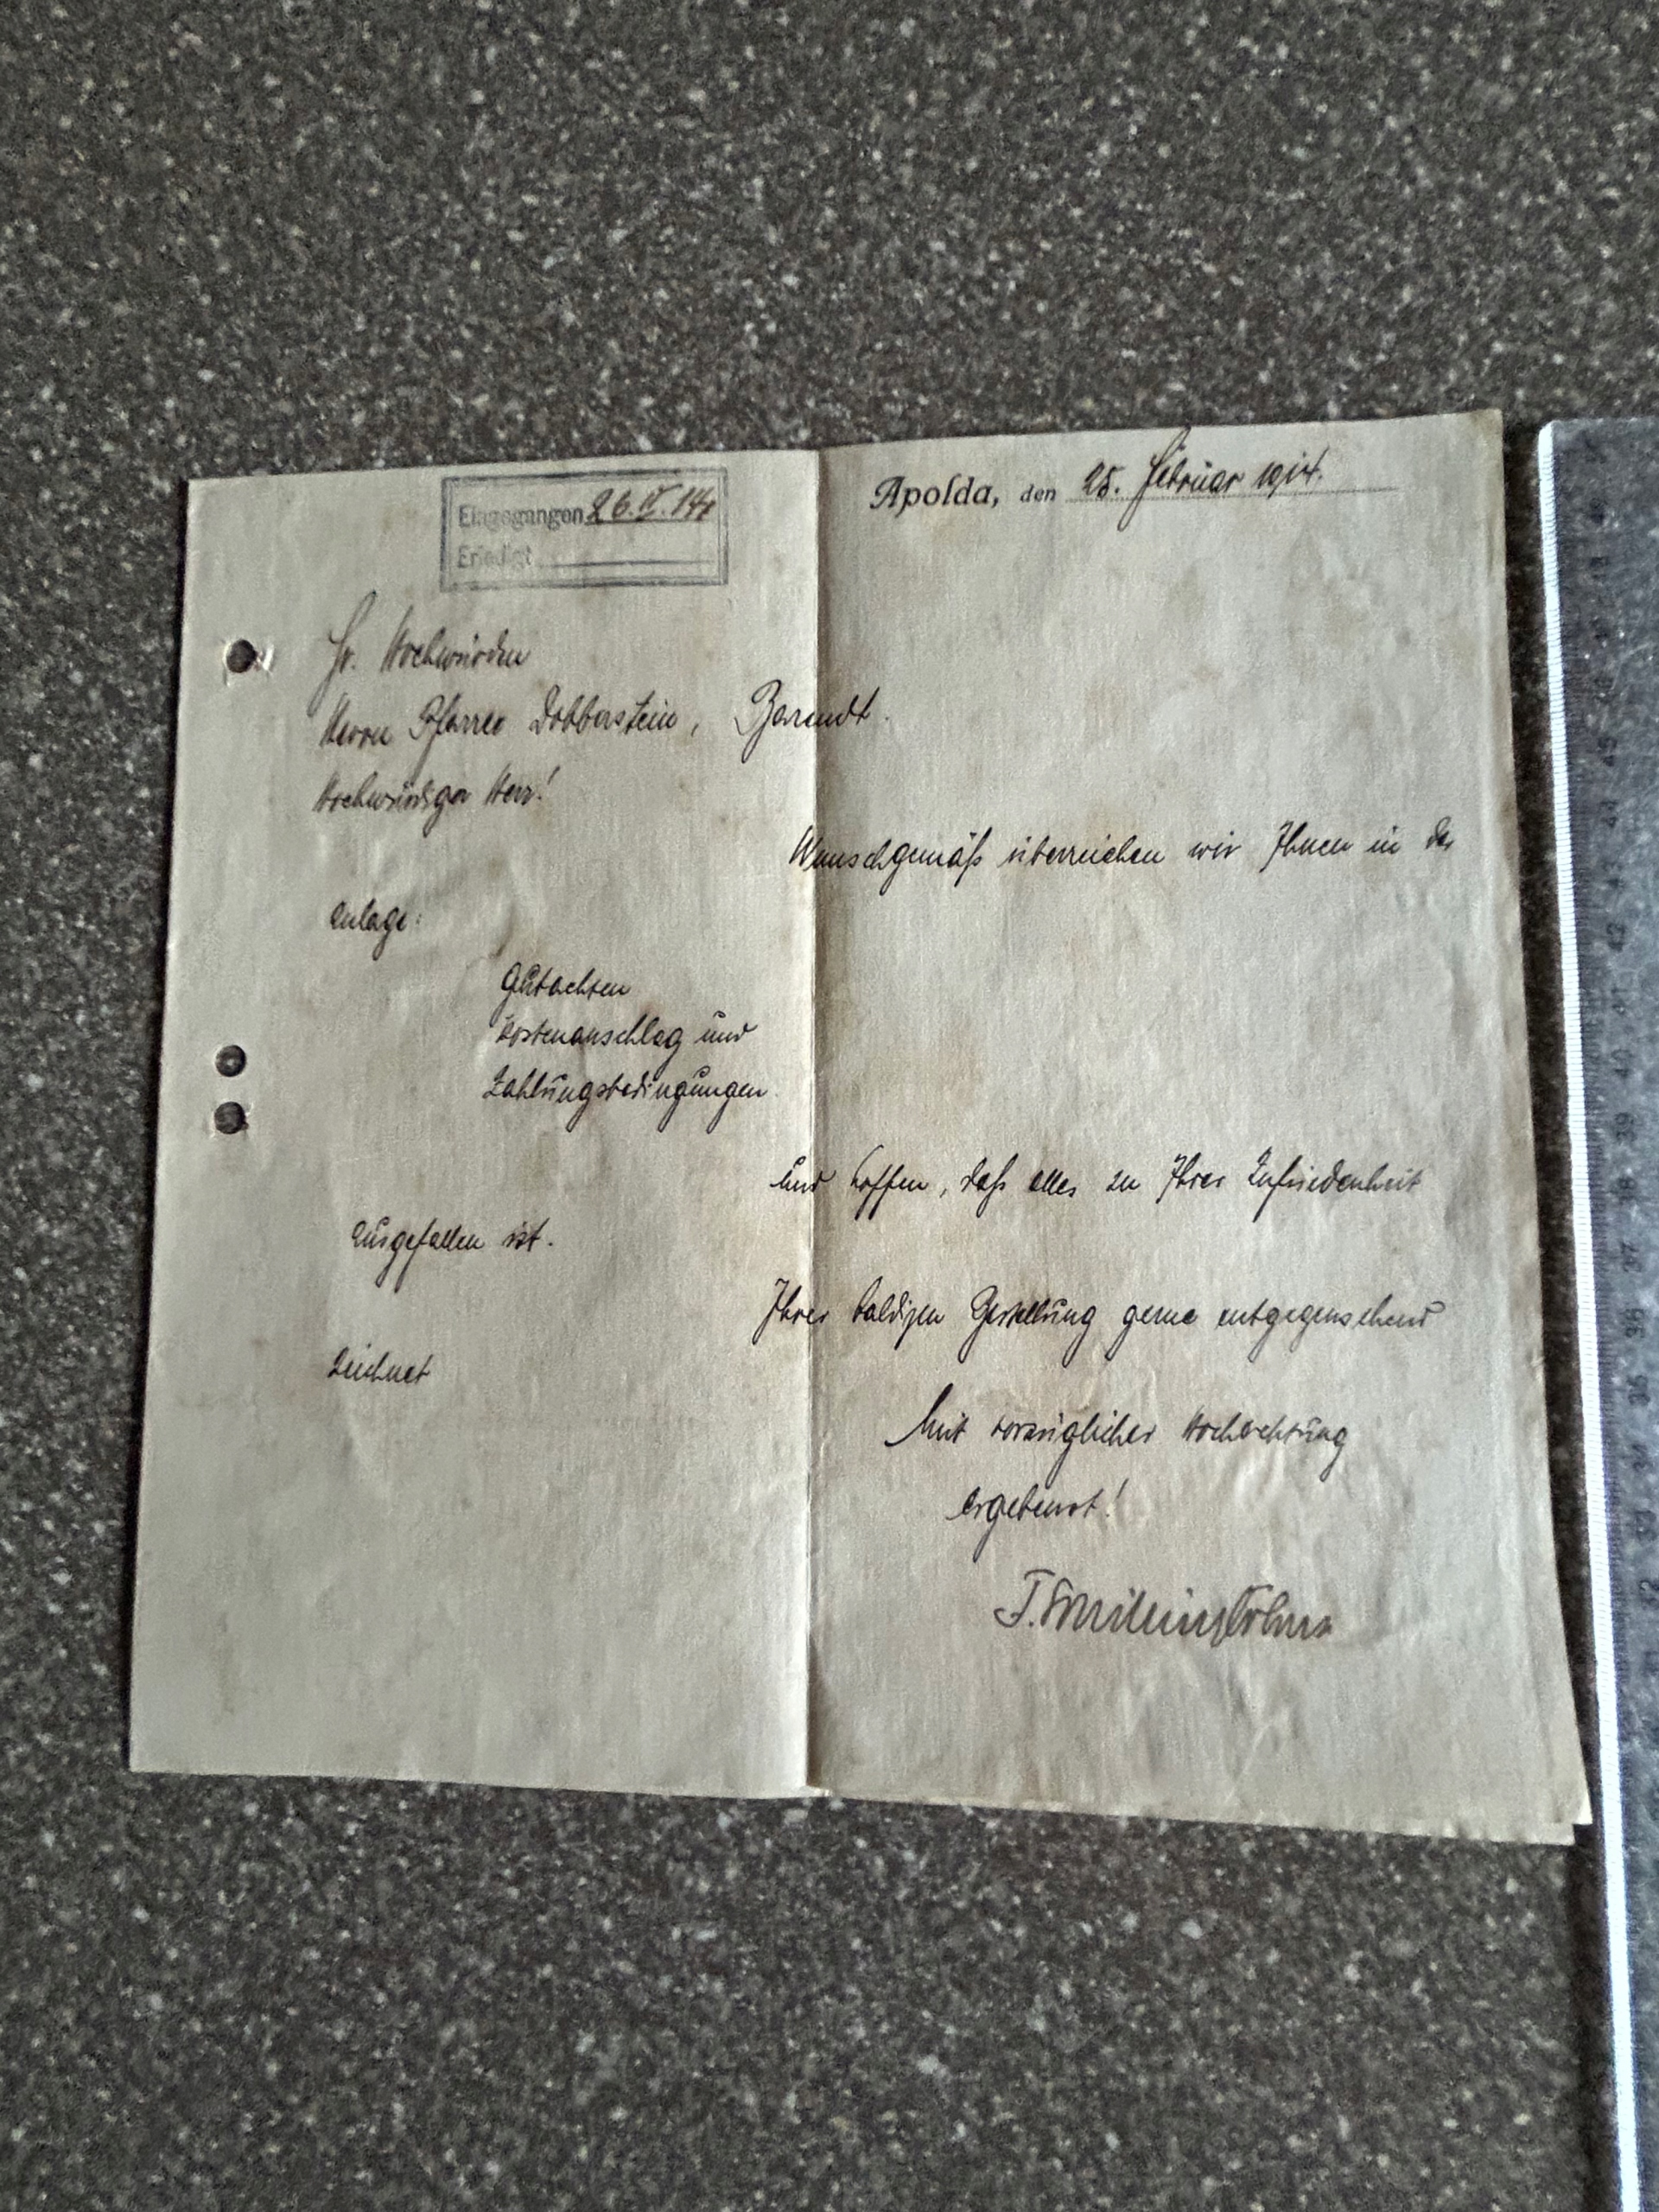 Eingegangen 26.II.14
Erledigt
Apolda, den 25. Februar 1914.
Sr. Hochwürden
Herrn Pfarrer Dobberstein,
Hochwürdiger Herr!
Wunschgemäß überreichen wir Ihnen in der
Anlage:
Gutachten
Kostenanschlag und
Zahlungsbedingungen
und hoffen, daß alles zu Ihrer Zufriedenheit
ausgefallen ist.
Ihrer baldigen Bestellung gerne entgegensehend
zeichnet
Mit vorzüglicher Hochachtung
ergebenst!